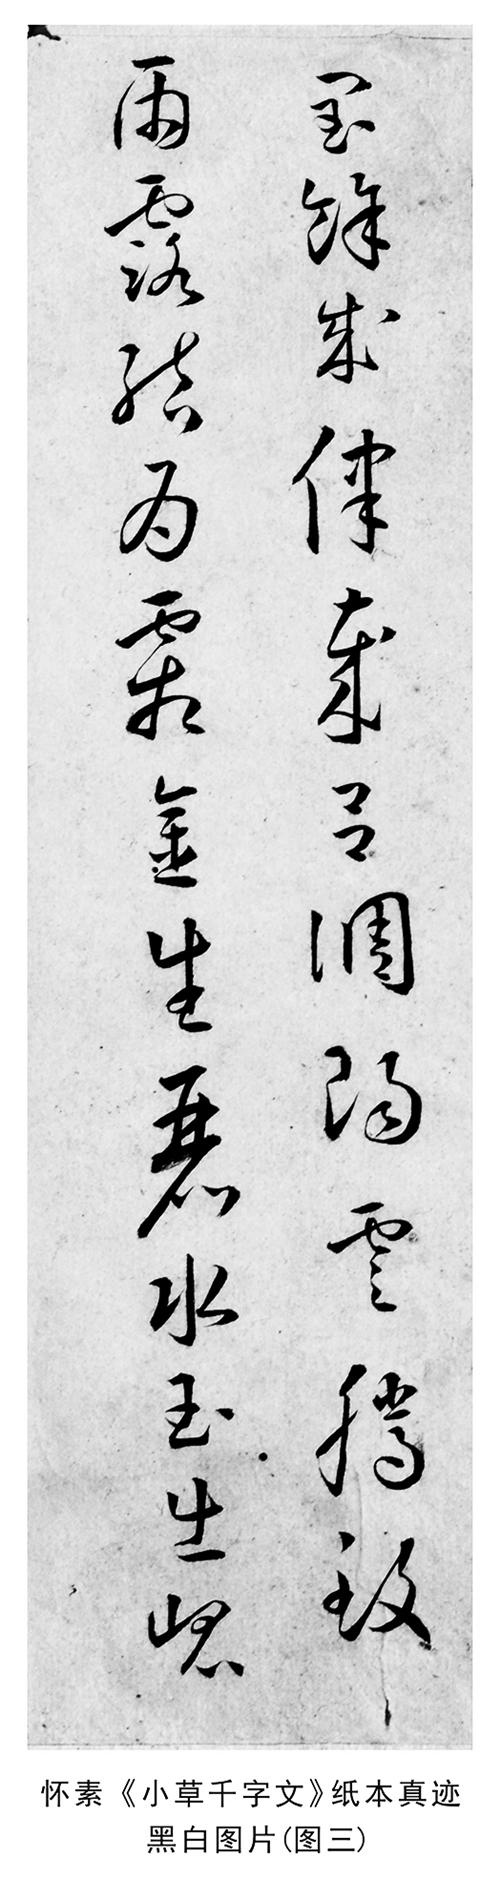 閏餘成律歲呂調陽雲騰致
雨露結為霜金生麗水玉生崑
怀素《小草千字文》纸本真迹
黑白图片(图三)